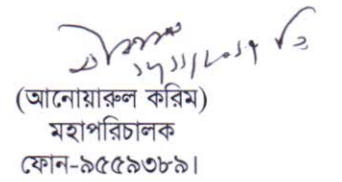 (আনোয়ারুল করিম)
মহাপরিচালক
ফোন-৯৫৫৯৩৮৯।